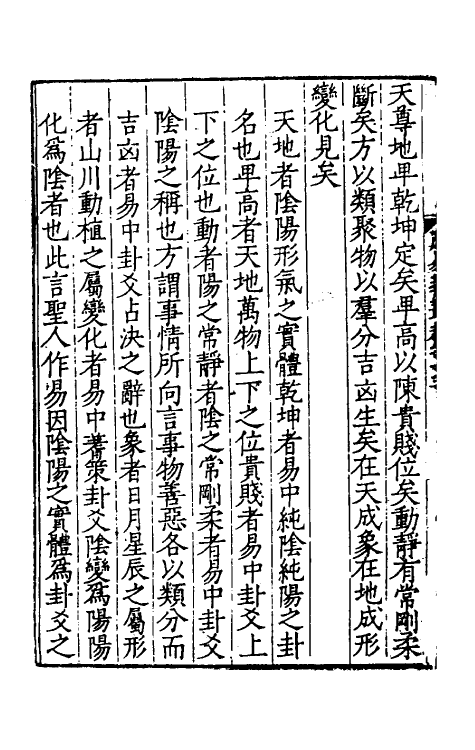 天尊地卑乾坤定矣卑高以陳貴賤位矣動靜有常剛柔
斷矣方以類聚物以羣分吉凶生矣在天成象在地成形
變化見矣
天地者陰陽形氣之實體乾坤者易中純陰純陽之卦
名也卑高者天地萬物上下之位貴賤者易中卦爻上
下之位也動者陽之常靜者陰之常剛柔者易中卦爻
陰陽之稱也方謂事情所向言事物善惡各以類分而
吉凶者易中卦爻占決之辭也象者日月星辰之屬形
者山川動植之屬變化者易中蓍策卦爻陰變爲陽陽
化爲陰者也此言聖人作易因陰陽之實體爲卦爻之